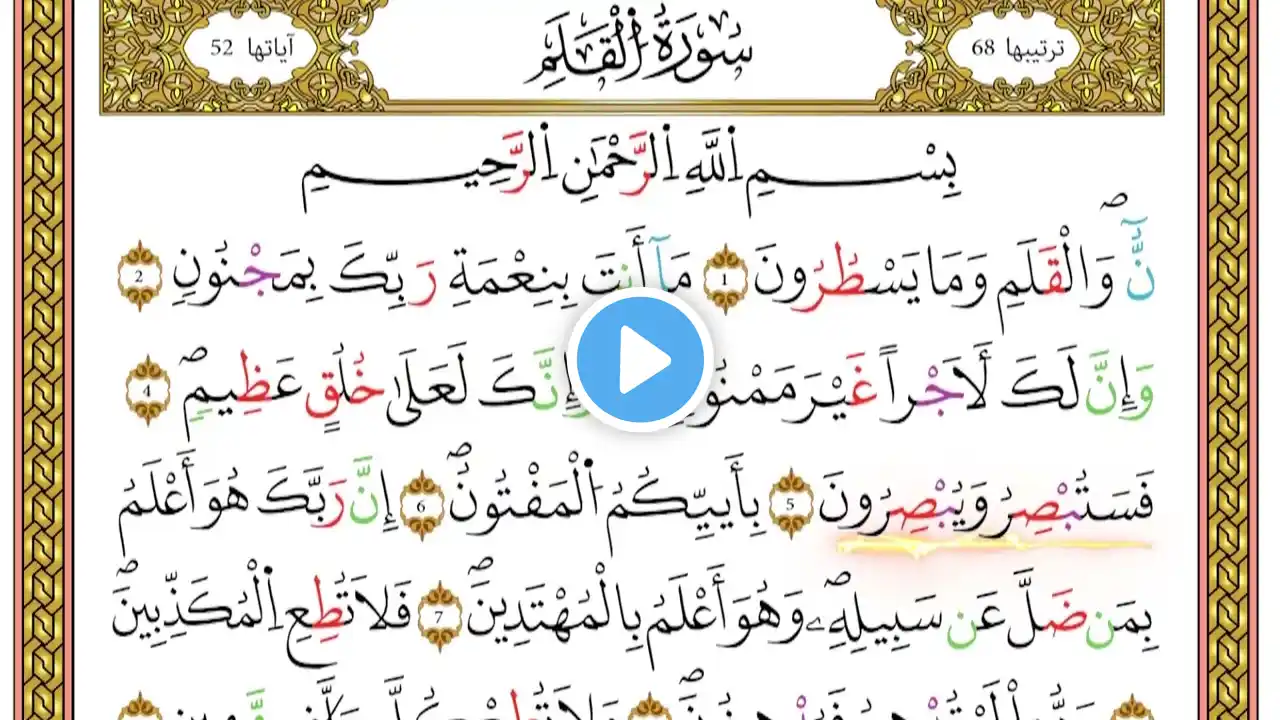 ترتيبها 68 سورة القلم آياتها 52
بِسْمِ اِللَّهِ اِلرَّحْمَٰنِ اِلرَّحِيمِ
نَٓ وَالْقَلَمِ وَمَا يَسْطُرُونَ 1 مَآ أَنتَ بِنِعْمَةِ رَبِّكَ بِمَجْنُونٖ 2
وَإِنَّ لَكَ لَأَجْراً غَيْرَ مَمْنُو وَإِنَّكَ لَعَلَىٰ خُلُقٍ عَظِيمٖ 4
فَسَتُبْصِرُ وَيُبْصِرُونَ 5 بِأَييِّكُمُ اُلْمَفْتُونُ 6 إِنَّ رَبَّكَ هُوَ أَعْلَمُ
بِمَن ضَلَّ عَن سَبِيلِهِۦ وَهُوَ أَعْلَمُ بِالْمُهْتَدِينَ 7 فَلَا تُطِعِ اِلْمُكَذِّبِينَ